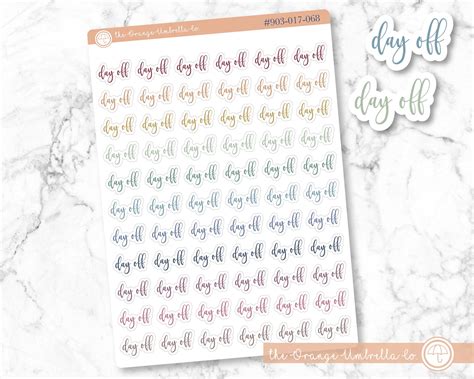 the-Orange-Umbrella-Co. #903-017-068
day off day off day off day off day off day off
day off day off day off day off day off day off
day off day off day off day off day off day off
day off day off day off day off day off day off
day off day off day off day off day off day off
day off day off day off day off day off day off
day off day off day off day off day off day off
day off day off day off day off day off day off
day off day off day off day off day off day off
day off day off day off day off day off day off
day off day off day off day off day off day off
day off
day off
the-Orange-Umbrella-Co.